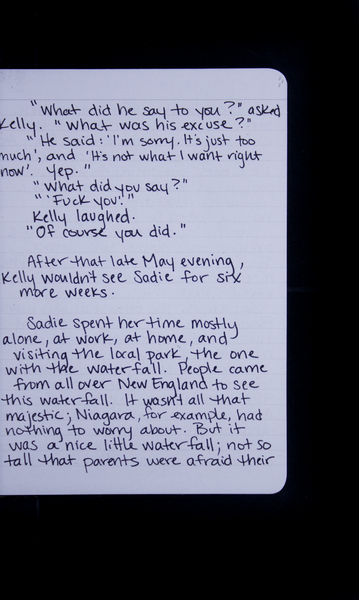 "What did he say to you?" asked
Kelly. "What was his excuse?"
"He said: 'I'm sorry. It's just too
much', and 'It's not what I want right
now'. Yep."
"What did you say?"
"'Fuck you!'"
Kelly laughed.
"Of course you did."
After that late May evening,
Kelly wouldn't see Sadie for six
more weeks.
Sadie spent her time mostly
alone, at work, at home, and
visiting the local park, the one
with the waterfall. People came
from all over New England to see
this waterfall. It wasn't all that
majestic; Niagara, for example, had
nothing to worry about. But it
was a nice little waterfall; not so
tall that parents were afraid their